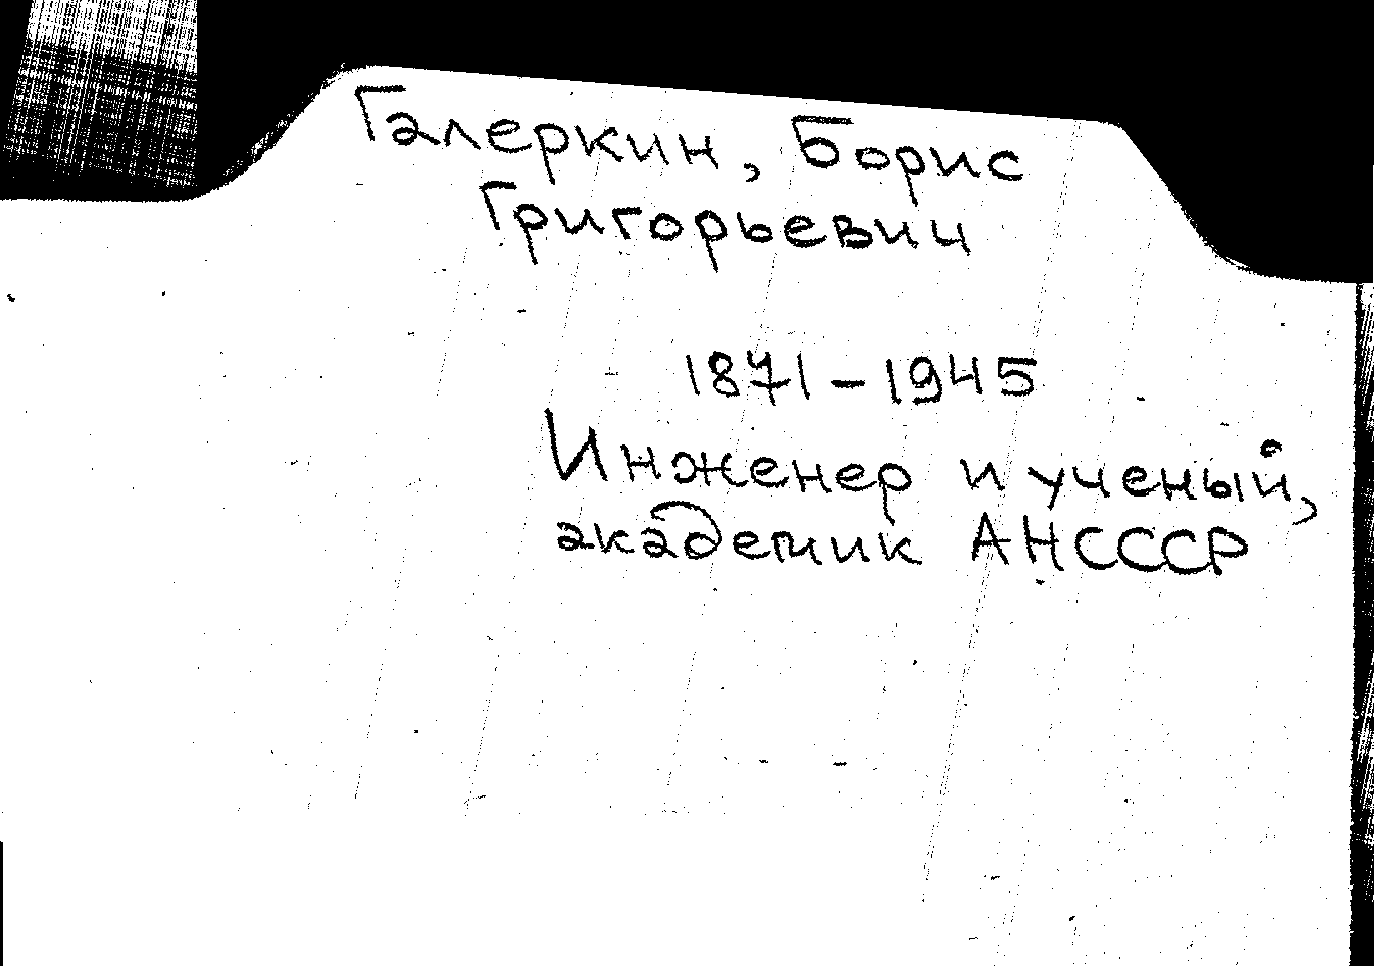 Галеркин, Борис
Григорьевич
1871-1945
Инженер и ученый,
академик АНСССР